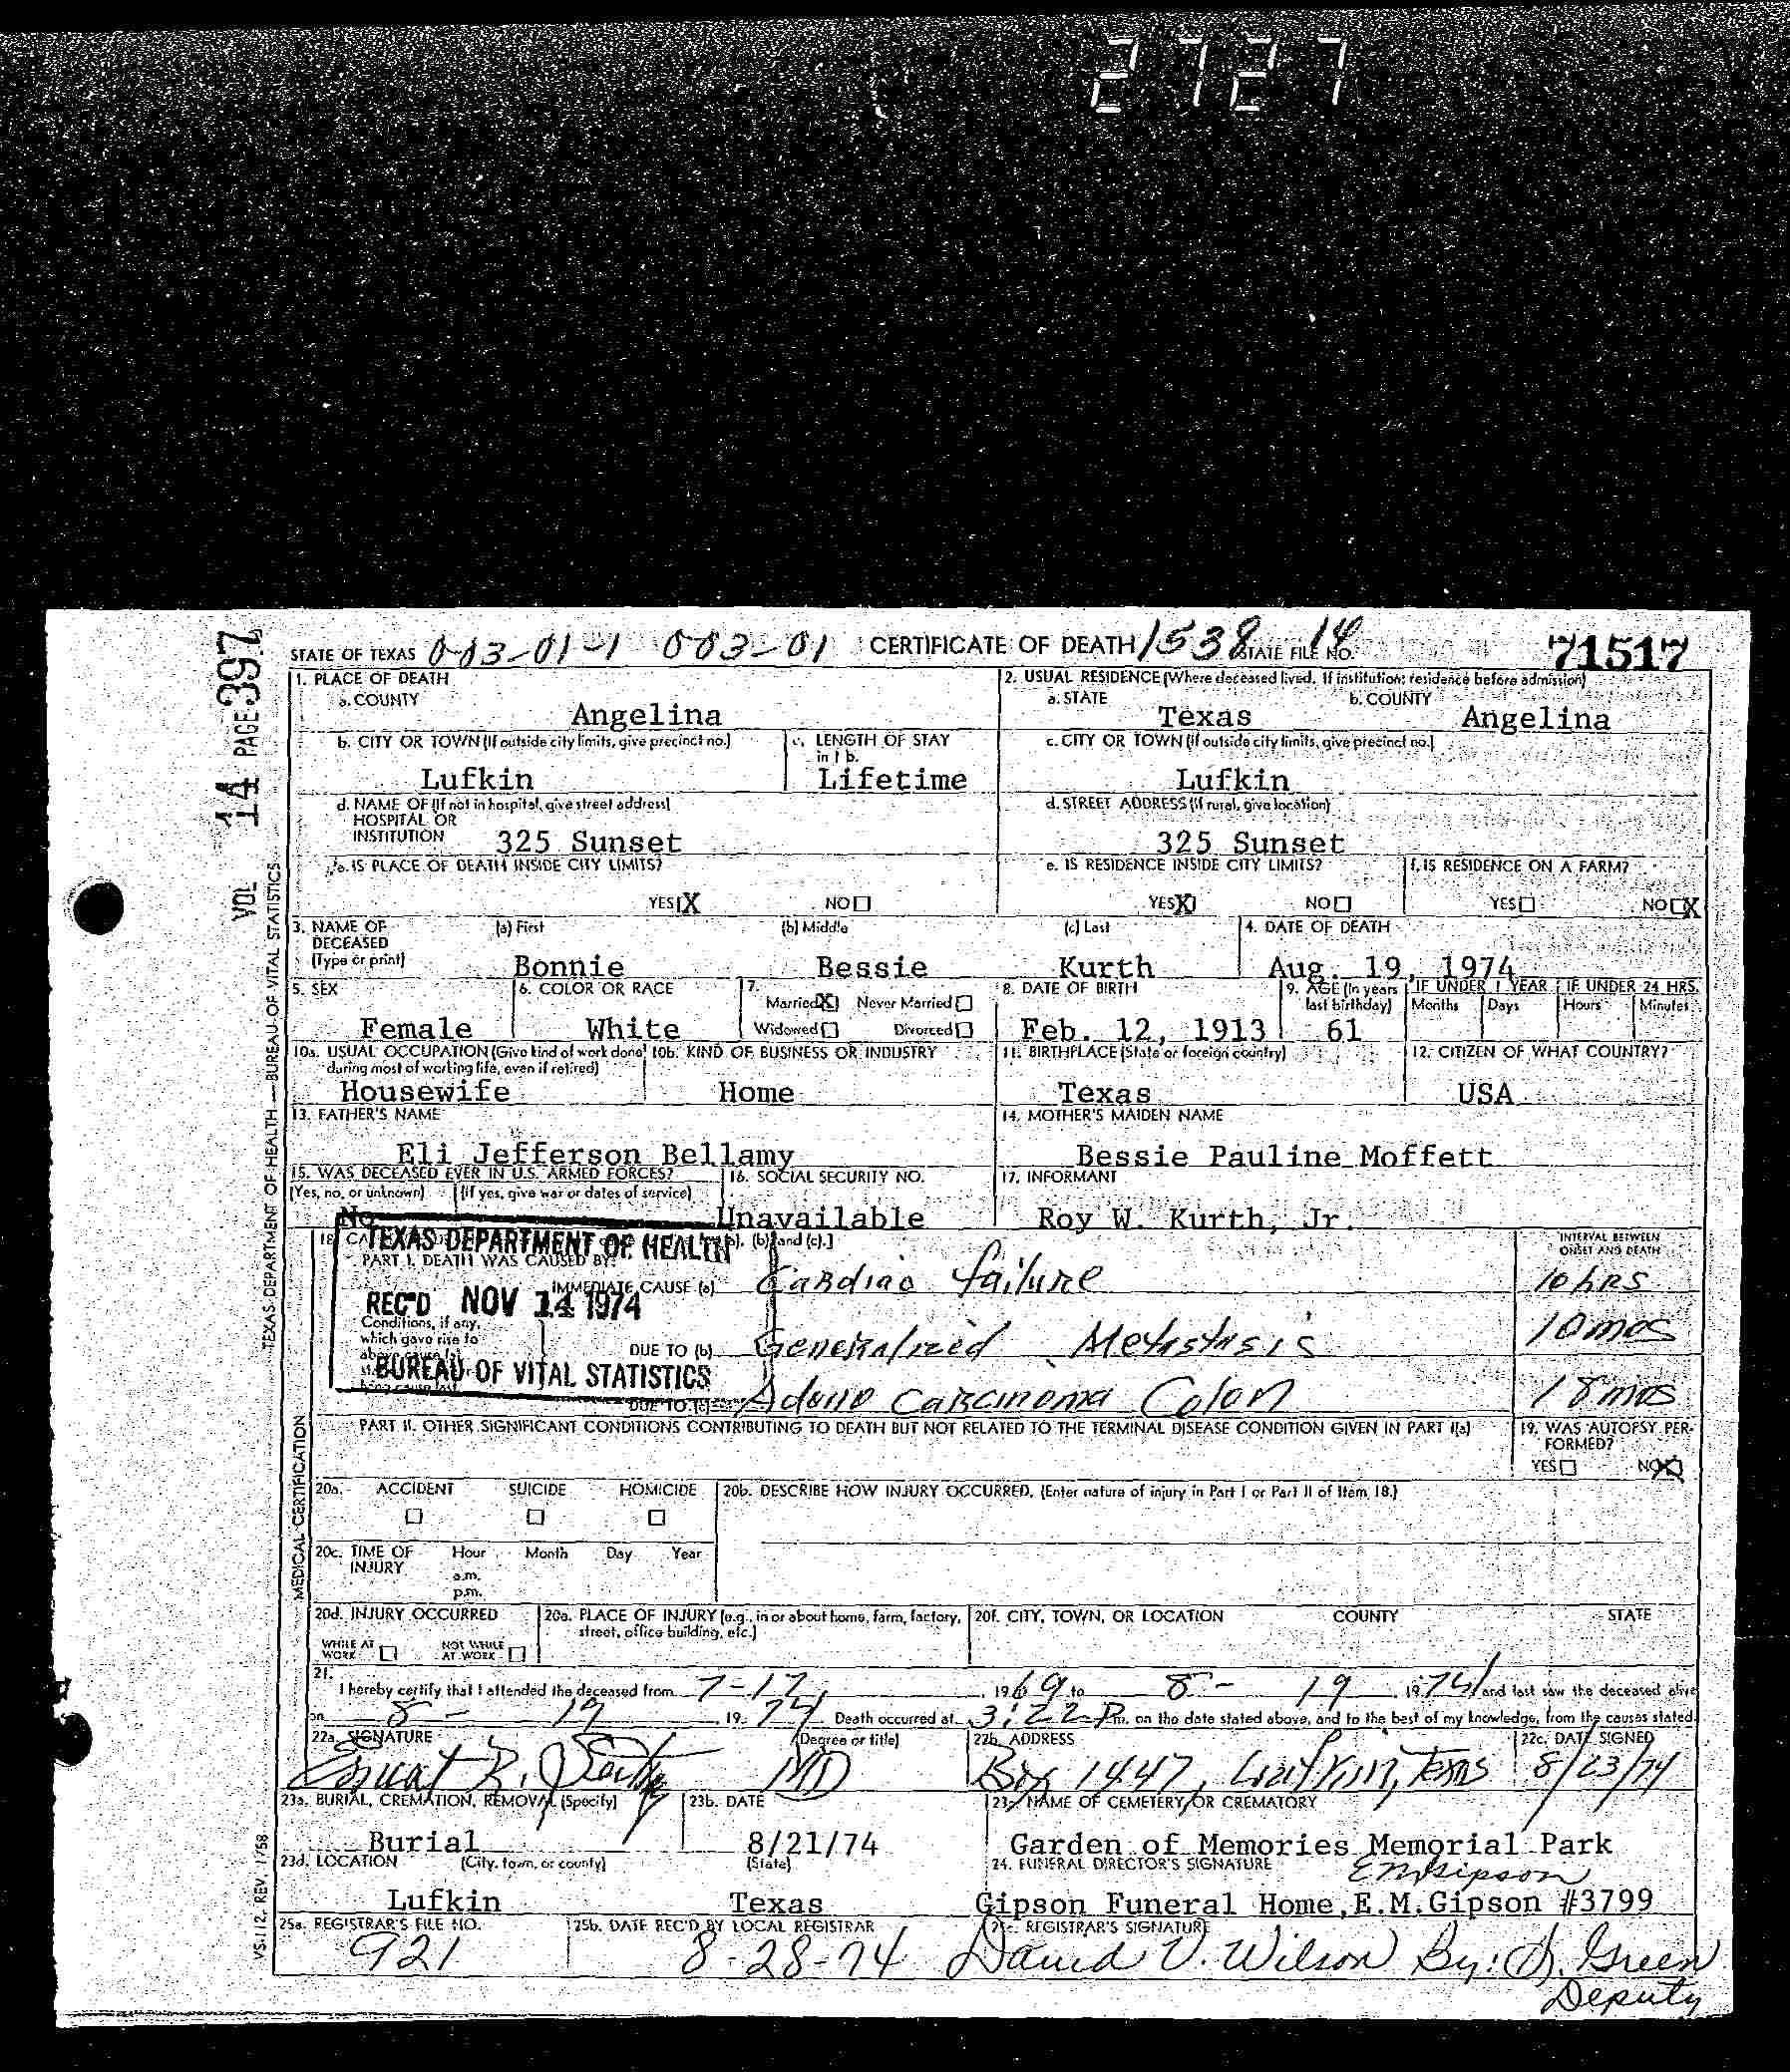 2727
VOL 14 PAGE 397
STATE OF TEXAS 003-01-1 003-01 CERTIFICATE OF DEATH 1538 14 STATE FILE NO. 71517
TEXAS DEPARTMENT OF HEALTH — BUREAU OF VITAL STATISTICS
1. PLACE OF DEATH
a. COUNTY
Angelina
2. USUAL RESIDENCE (Where deceased lived. If institution: residence before admission)
a. STATE b. COUNTY
Texas Angelina
b. CITY OR TOWN (If outside city limits, give precinct no.)
Lufkin
c. LENGTH OF STAY
in 1 b.
Lifetime
c. CITY OR TOWN (If outside city limits, give precinct no.)
Lufkin
d. NAME OF (If not in hospital, give street address)
HOSPITAL OR
INSTITUTION 325 Sunset
d. STREET ADDRESS (If rural, give location)
325 Sunset
e. IS PLACE OF DEATH INSIDE CITY LIMITS?
YES X NO
e. IS RESIDENCE INSIDE CITY LIMITS?
YES X NO
f. IS RESIDENCE ON A FARM?
YES NO X
3. NAME OF DECEASED
(Type or print)
(a) First (b) Middle (c) Last
Bonnie Bessie Kurth
4. DATE OF DEATH
Aug. 19, 1974
5. SEX
Female
6. COLOR OR RACE
White
7.
Married X Never Married
Widowed Divorced
8. DATE OF BIRTH
Feb. 12, 1913
9. AGE (In years last birthday)
61
IF UNDER 1 YEAR
Months Days
IF UNDER 24 HRS.
Hours Minutes
10a. USUAL OCCUPATION (Give kind of work done during most of working life, even if retired)
Housewife
10b. KIND OF BUSINESS OR INDUSTRY
Home
11. BIRTHPLACE (State or foreign country)
Texas
12. CITIZEN OF WHAT COUNTRY?
USA
13. FATHER'S NAME
Eli Jefferson Bellamy
14. MOTHER'S MAIDEN NAME
Bessie Pauline Moffett
15. WAS DECEASED EVER IN U.S. ARMED FORCES?
(Yes, no, or unknown) (If yes, give war or dates of service)
No
16. SOCIAL SECURITY NO.
Unavailable
17. INFORMANT
Roy W. Kurth, Jr.
TEXAS DEPARTMENT OF HEALTH
REC'D NOV 14 1974
BUREAU OF VITAL STATISTICS
MEDICAL CERTIFICATION
PART I. DEATH WAS CAUSED BY:
INTERVAL BETWEEN ONSET AND DEATH
IMMEDIATE CAUSE (a) Cardiac failure 10 hrs
Conditions, if any,
which gave rise to
DUE TO (b) Generalized Metastasis 10 mos
DUE TO (c) Adeno Carcinoma Colon 18 mos
PART II. OTHER SIGNIFICANT CONDITIONS CONTRIBUTING TO DEATH BUT NOT RELATED TO THE TERMINAL DISEASE CONDITION GIVEN IN PART I(a)
19. WAS AUTOPSY PERFORMED?
YES NO X
20a. ACCIDENT SUICIDE HOMICIDE
20b. DESCRIBE HOW INJURY OCCURRED. (Enter nature of injury in Part I or Part II of Item 18.)
20c. TIME OF INJURY Hour Month Day Year
a.m.
p.m.
20d. INJURY OCCURRED
WHILE AT WORK NOT WHILE AT WORK
20e. PLACE OF INJURY (e.g., in or about home, farm, factory, street, office building, etc.)
20f. CITY, TOWN, OR LOCATION COUNTY STATE
21.
I hereby certify that I attended the deceased from 7-17, 1969 to 8-19, 1974 and last saw the deceased alive
on 8-19, 1974 Death occurred at 3:22 P.m. on the date stated above, and to the best of my knowledge, from the causes stated.
22a. SIGNATURE (Degree or title)
MD
22b. ADDRESS
Box 1447, Lufkin, Texas
22c. DATE SIGNED
8/23/74
23a. BURIAL, CREMATION, REMOVAL (Specify)
Burial
23b. DATE
8/21/74
23c. NAME OF CEMETERY OR CREMATORY
Garden of Memories Memorial Park
23d. LOCATION (City, town, or county) (State)
Lufkin Texas
24. FUNERAL DIRECTOR'S SIGNATURE
EM Gipson
Gipson Funeral Home, E.M. Gipson #3799
25a. REGISTRAR'S FILE NO.
921
25b. DATE REC'D BY LOCAL REGISTRAR
8-28-74
25c. REGISTRAR'S SIGNATURE
David V. Wilson By: D. Green
Deputy
VS-112, REV. 1/58